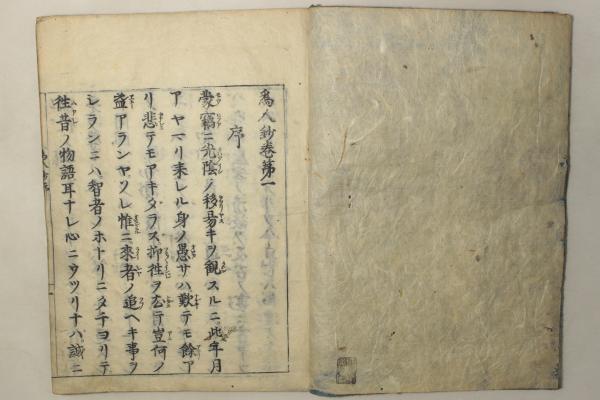 為人鈔巻第一
序
蒙竊ニ光陰ノ移易キヲ観スルニ此年月
アヤマリ来レル身ノ愚サハ歎テモ餘ア
リ悲テモアキタラス抑往ヲ尤テ豈何ノ
益アランヤソレ惟ニ来者ノ追ヘキ事ヲ
シランニハ智者ノホトリニタチヨリテ
往昔ノ物語耳ナレ心ニウツリナハ誠ニ